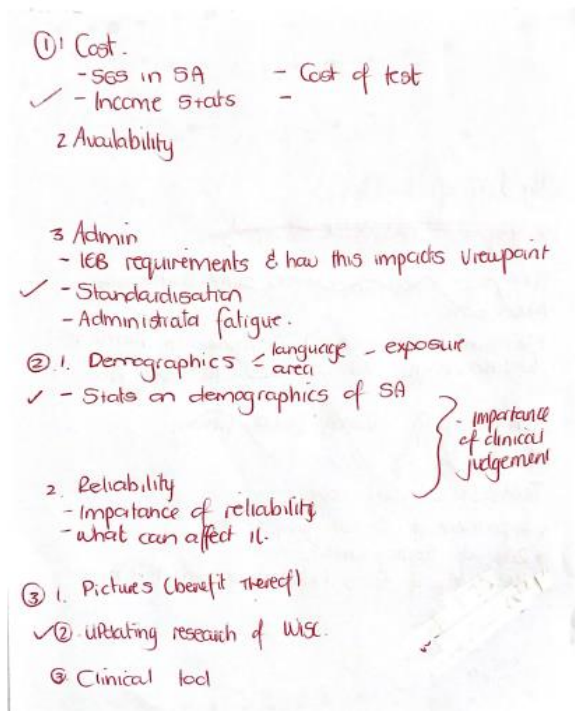 ① 1 Cost.
- SGS in SA - Cost of test
✓ - Income Stats -
2 Availability
3 Admin
- IEB requirements & how this impacts viewpoint
✓ - Standardisation
- Administrata fatigue.
② 1. Demographics < language - exposure
area
✓ - Stats on demographics of SA
- importance
of clinical
judgement
2. Reliability
- Importance of reliability
- what can affect it.
③ 1. Pictures (benefit thereof)
✓ ② updating research of WISC.
③ Clinical tool